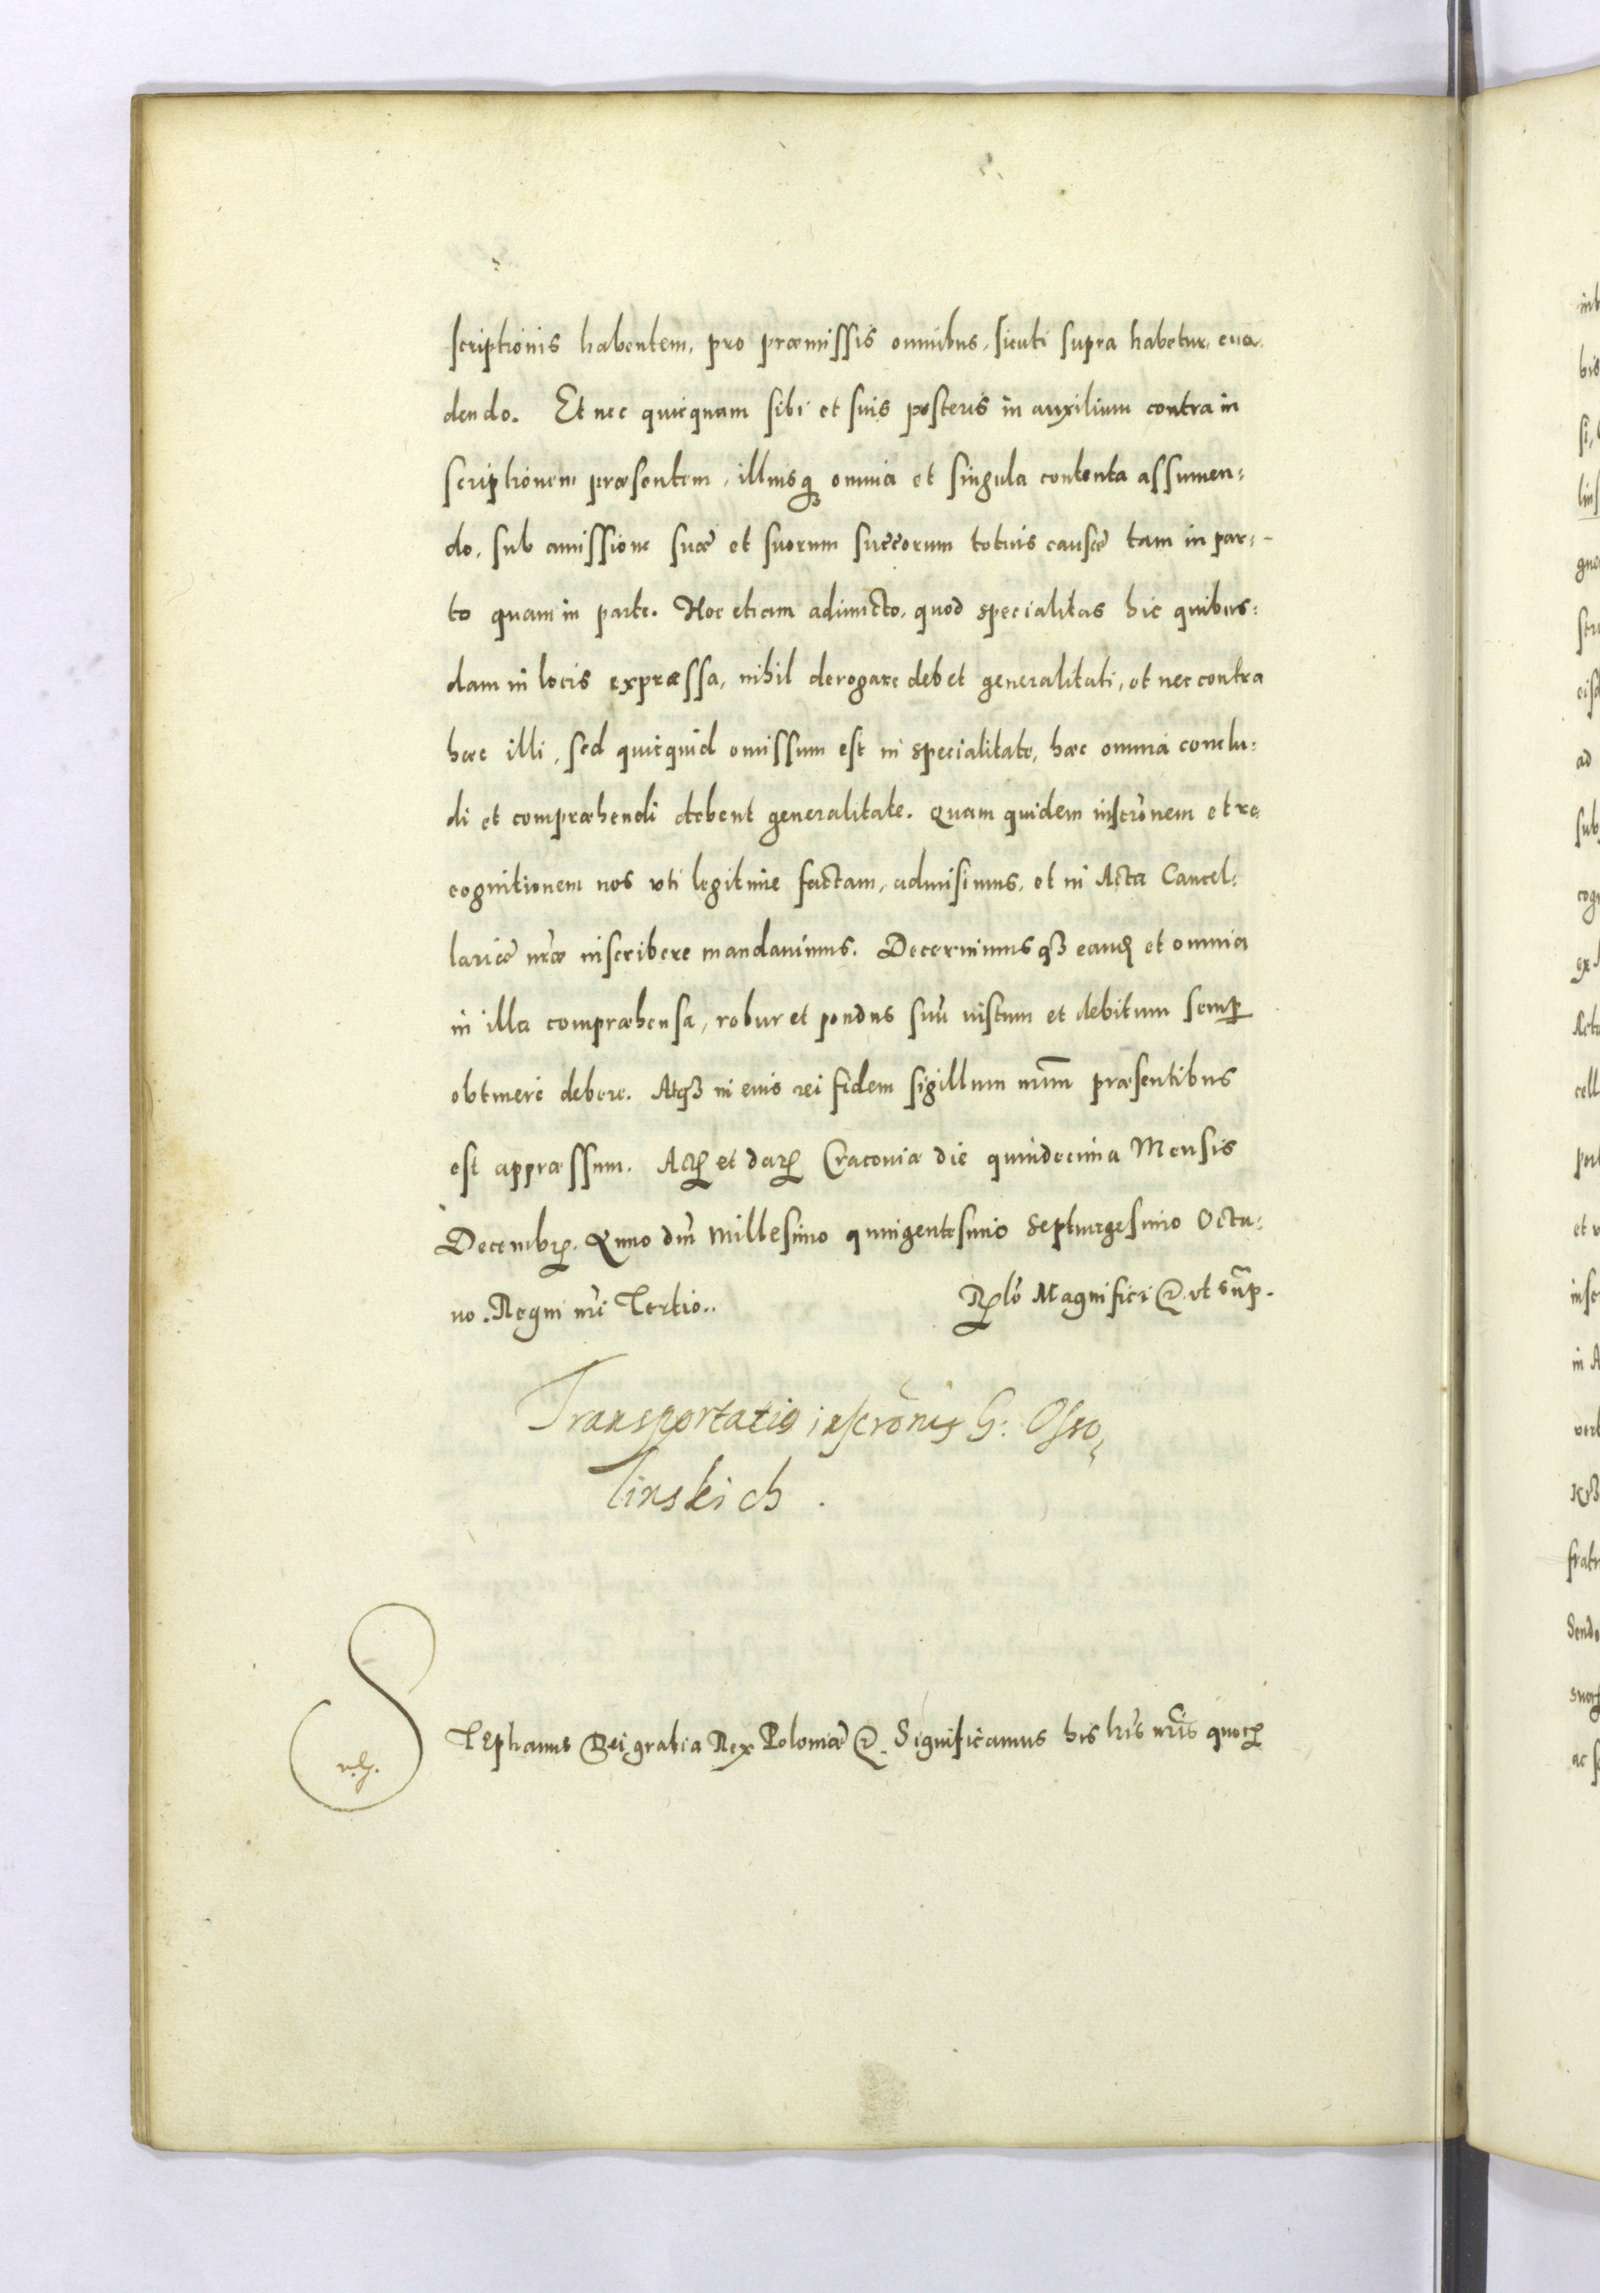 scriptionis habentem, pro præmissis omnibus, sicuti supra habetur, eua-
dendo. Et nec quicquam sibi et suis posteris in auxilium contra in
scriptionem præsentem, illiusq; omnia et singula contenta assumen:
do, sub amissione suæ et suorum succorum totius causæ tam in par:
to quam in parte. Hoc etiam adiuncto, quod specialitas hic quibus:
dam in locis expræssa, nihil derogare debet generalitati, et nec contra
hæc illi, sed quicquid omissum est in specialitate, hæc omnia conclu:
di et compræhendi debent generalitate. Quam quidem inscrōnem et re
cognitionem nos vti legitime factam, admisimus, et in Acta Cancel:
lariæ nr̄æ inscribere mandauimus. Decernimusq3 eand et omnia
in illa compræhensa, robur et pondus suū iustum et debitum semp
obtineri debere. Atq3 in eius rei fidem sigillum nrū̄m præsentibus
est appræssum. Act et dat Cracouiæ die quindecima Mensis
Decembr. Anno dnī Millesimo quingentesimo Septuagesimo Octa:
uo. Regni nr̄i Tertio..
Relō Magnifici &. ut sup.
Transportatio inscrōnis G: Osso,
linskich.
STEphanus Dei gratia Rex Poloniæ &. Significamus his lr̄is nr̄is quor